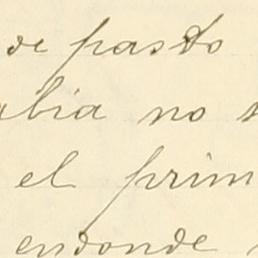 de pasto
abia no s
el prim
endonde